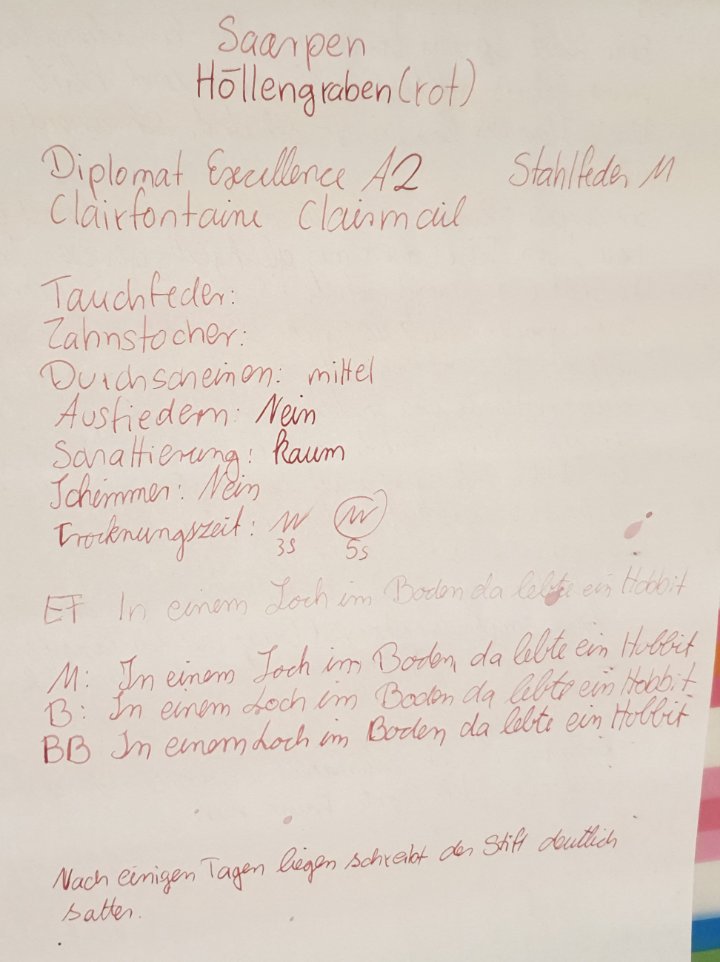 Saarpen
Höllengraben (rot)
Diplomat Excellence A2 Stahlfeder M
Clairfontaine Clairmail
Tauchfeder:
Zahnstocher:
Durchscheinen: mittel
Ausfiedern: Nein
Schattierung: kaum
Schimmer: Nein
Trocknungszeit: W W
3s 5s
EF In einem Loch im Boden da lebte ein Hobbit
M: In einem Loch im Boden, da lebte ein Hobbit
B: In einem Loch im Boden da lebte ein Hobbit
BB In einem Loch im Boden da lebte ein Hobbit
Nach einigen Tagen liegen schreibt der Stift deutlich
satter.